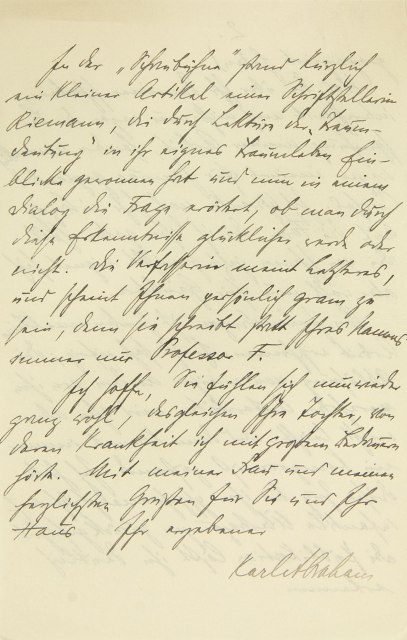 In der „Schaubühne“ stand kürzlich
ein kleiner Artikel einer Schriftstellerin
Riemann, die durch Lektüre der „Traum-
deutung“ in ihr eignes Traumleben Ein-
blicke gewonnen hat und nun in einem
Dialog die Frage erörtert, ob man durch
diese Erkenntnisse glücklicher werde oder
nicht. Die Verfasserin meint Letzteres,
und scheint Ihnen persönlich gram zu
sein, denn sie schreibt statt Ihres Namens
immer nur Professor F.
Ich hoffe, Sie fühlen sich nun wieder
ganz wohl, desgleichen Ihre Tochter, von
deren Krankheit ich mit großem Bedauern
hörte. Mit meiner Frau und meinen
herzlichsten Grüßen für Sie und Ihr
Haus Ihr ergebener
Karl Abraham